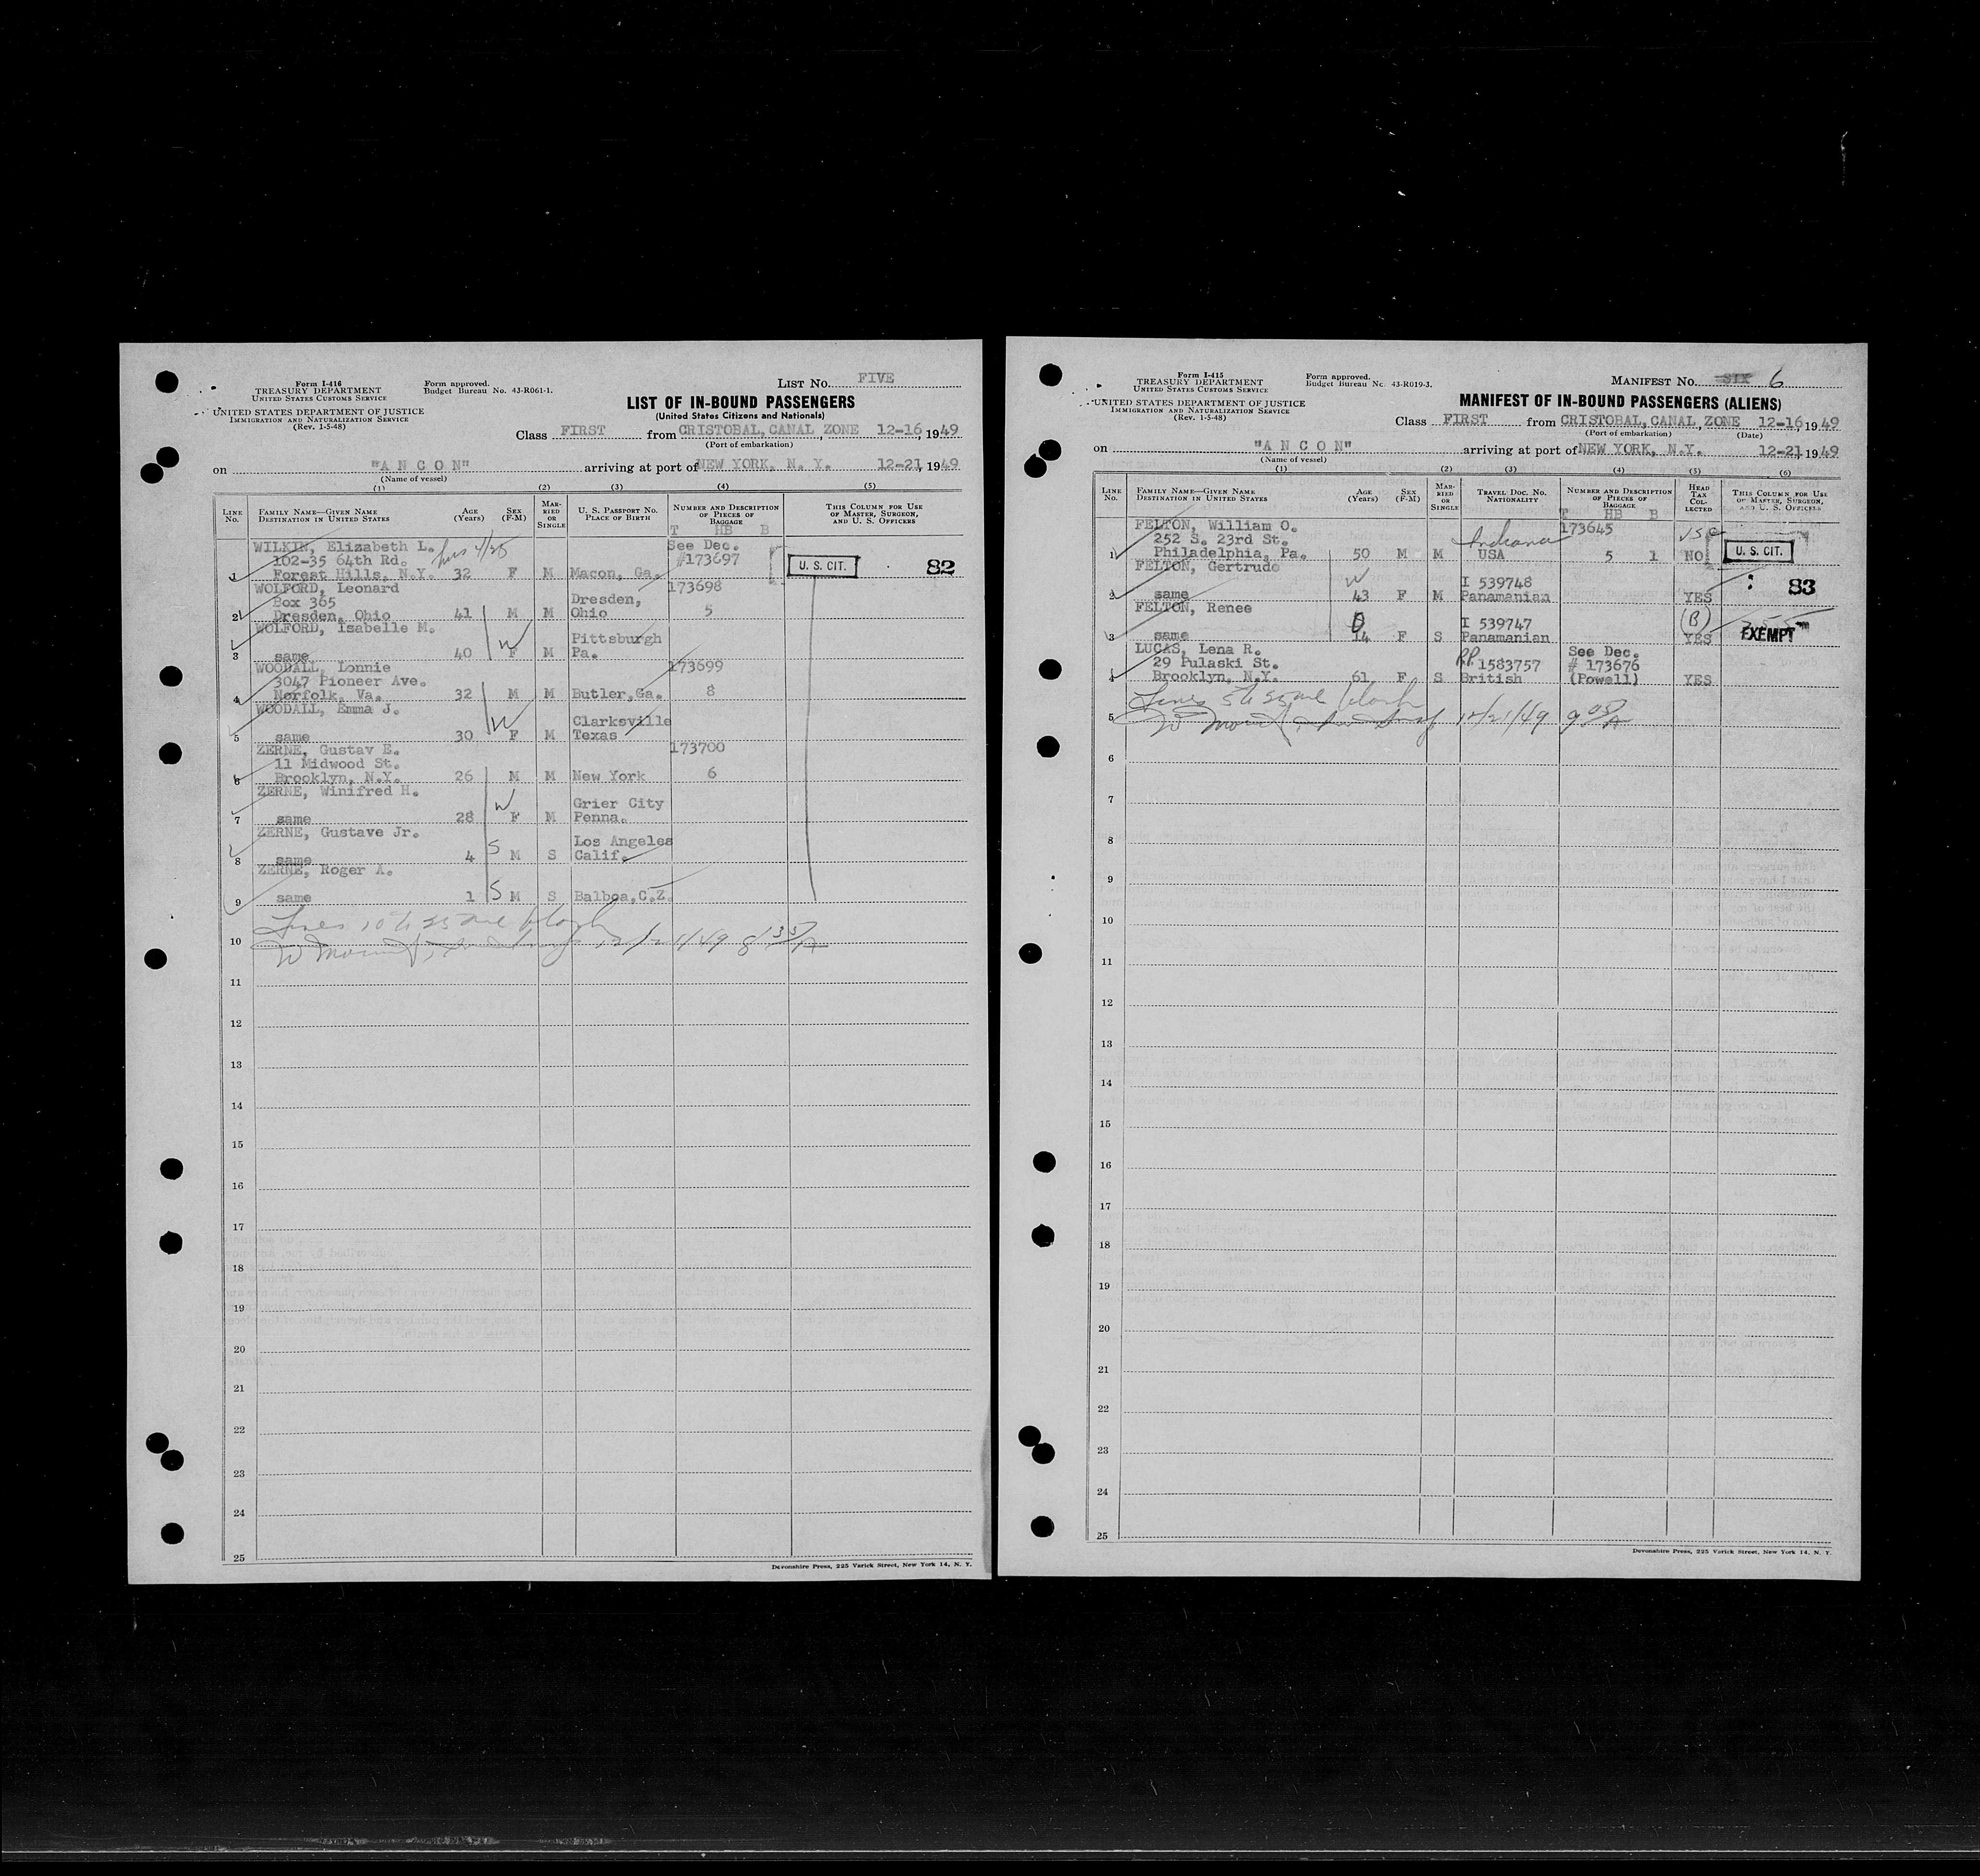 Form I-416
TREASURY DEPARTMENT
UNITED STATES CUSTOMS SERVICE
UNITED STATES DEPARTMENT OF JUSTICE
IMMIGRATION AND NATURALIZATION SERVICE
(Rev. 1-5-48)
Form approved.
Budget Bureau No. 43-R061-1.
LIST No. FIVE
LIST OF IN-BOUND PASSENGERS
(United States Citizens and Nationals)
Class FIRST from CRISTOBAL, CANAL ZONE, 12-16, 1949
(Port of embarkation)
on "A N C O N" arriving at port of NEW YORK, N. Y. 12-21, 1949
(Name of vessel)
(1) (2) (3) (4) (5)
LINE No. FAMILY NAME—GIVEN NAME DESTINATION IN UNITED STATES AGE (Years) SEX (F-M) MARRIED OR SINGLE U. S. PASSPORT No. PLACE OF BIRTH NUMBER AND DESCRIPTION OF PIECES OF BAGGAGE THIS COLUMN FOR USE OF MASTER, SURGEON, AND U. S. OFFICERS
T HB B
WILKIN, Elizabeth L. See Dec.
102-35 64th Rd. #173697
1 Forest Hills, N.Y. 32 F M Macon, Ga. U. S. CIT. 82
WOLFORD, Leonard 173698
Box 365 Dresden,
2 Dresden, Ohio 41 M M Ohio 5
WOLFORD, Isabelle M.
W Pittsburgh
3 same 40 F M Pa.
WOODALL, Lonnie 173699
3047 Pioneer Ave.
4 Norfolk, Va. 32 M M Butler, Ga. 8
WOODALL, Emma J.
W Clarksville
5 same 30 F M Texas
ZERNE, Gustav E. 173700
11 Midwood St.
6 Brooklyn, N.Y. 26 M M New York 6
ZERNE, Winifred H.
W Grier City
7 same 28 F M Penna.
ZERNE, Gustave Jr.
S Los Angeles
8 same 4 M S Calif.
ZERNE, Roger A.
9 same 1 S M S Balboa, C.Z.
Lines 10 to 25 are blank
10
11
12
13
14
15
16
17
18
19
20
21
22
23
24
25
Devonshire Press, 225 Varick Street, New York 14, N. Y.
Form I-415
TREASURY DEPARTMENT
UNITED STATES CUSTOMS SERVICE
UNITED STATES DEPARTMENT OF JUSTICE
IMMIGRATION AND NATURALIZATION SERVICE
(Rev. 1-5-48)
Form approved.
Budget Bureau No. 43-R019-3.
MANIFEST No. SIX 6
MANIFEST OF IN-BOUND PASSENGERS (ALIENS)
Class FIRST from CRISTOBAL, CANAL ZONE 12-16, 1949
(Port of embarkation) (Date)
on "A N C O N" arriving at port of NEW YORK, N.Y. 12-21, 1949
(Name of vessel)
(1) (2) (3) (4) (5) (6)
LINE No. FAMILY NAME—GIVEN NAME DESTINATION IN UNITED STATES AGE (Years) SEX (F-M) MARRIED OR SINGLE TRAVEL DOC. No. NATIONALITY NUMBER AND DESCRIPTION OF PIECES OF BAGGAGE HEAD TAX COLLECTED THIS COLUMN FOR USE OF MASTER, SURGEON, AND U. S. OFFICERS
T HB B
FELTON, William O. 173645
252 S. 23rd St. Indiana
1 Philadelphia, Pa. 50 M M USA 5 1 NO U. S. CIT.
FELTON, Gertrude
W I 539748 83
2 same 43 F M Panamanian YES
FELTON, Renee
I 539747 (B)
3 same 14 F S Panamanian YES EXEMPT
LUCAS, Lena R. See Dec.
29 Pulaski St. RP 1583757 # 173676
4 Brooklyn, N.Y. 61 F S British (Powell) YES
Lines 5 to 25 are blank
5 12/21/49
6
7
8
9
10
11
12
13
14
15
16
17
18
19
20
21
22
23
24
25
Devonshire Press, 225 Varick Street, New York 14, N. Y.